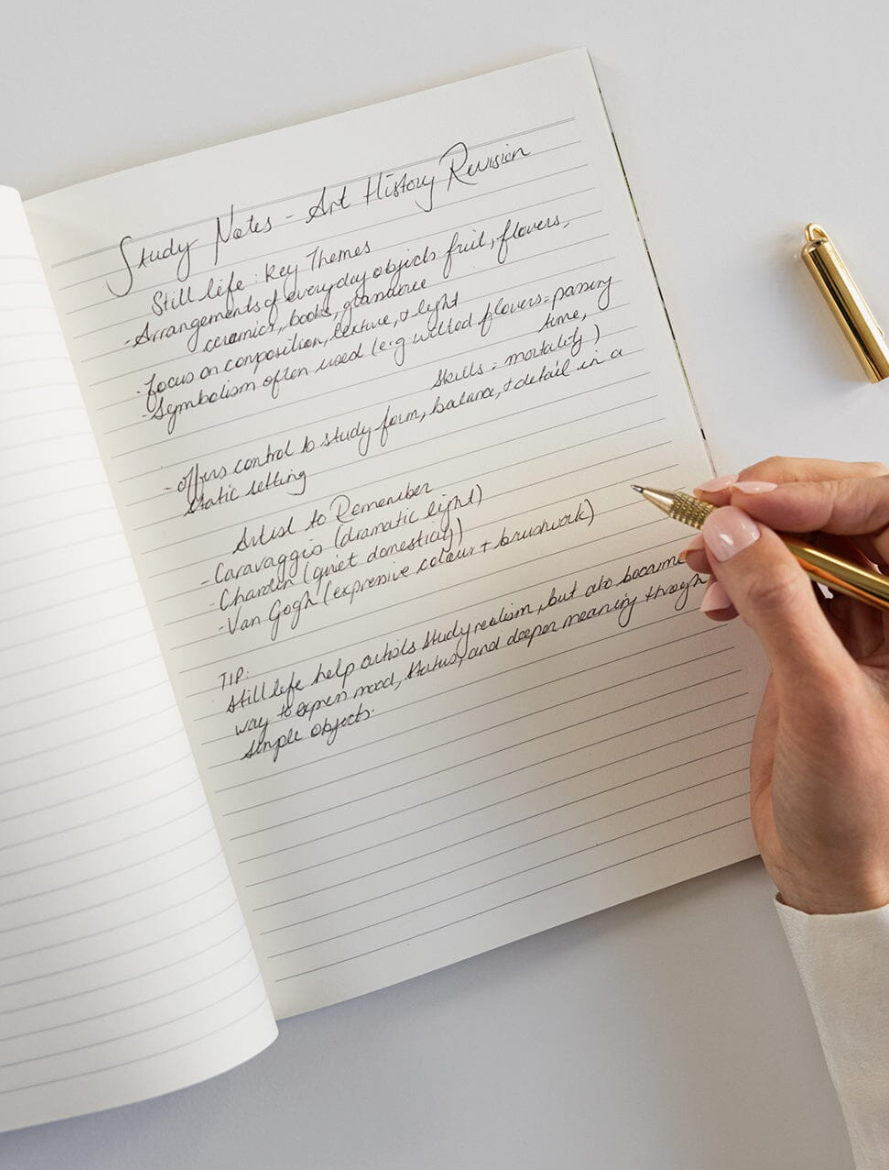 Study Notes - Art History Revision
Still life: Key Themes
- Arrangements of everyday objects fruit, flowers,
ceramics, books, glassware
- focus on composition, texture, & light
- Symbolism often used (e.g wilted flowers = passing
time,
Skills = mortality)
- offers control to study form, balance, & detail in a
static setting
Artist to Remember
- Caravaggio (dramatic light)
- Chardin (quiet domesticity)
- Van Gogh (expressive colour + brushwork)
TIP:
Still life help artists study realism, but also became
way to express mood, status, and deeper meaning through
simple objects.